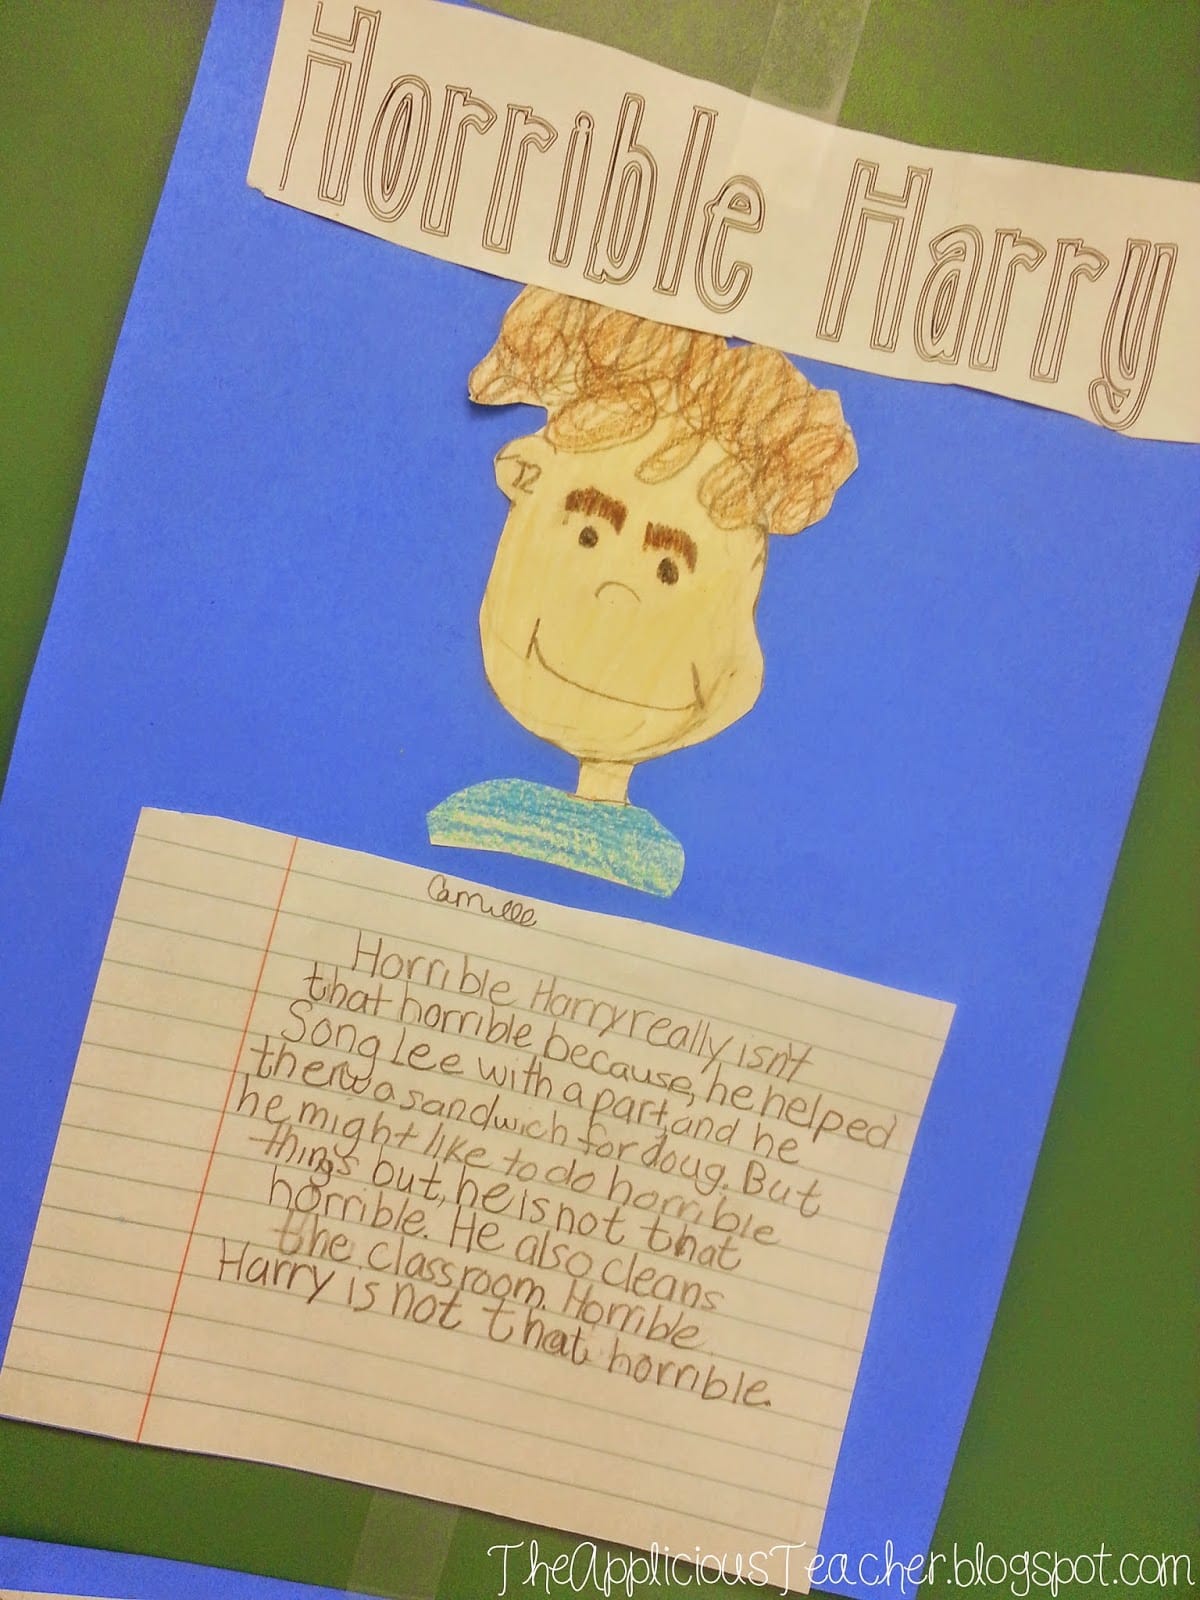 Horrible Harry
Camille
Horrible Harry really isn't
that horrible because, he helped
Song Lee with a part, and he
therw a sandwich for doug. But
he might like to do horrible
things but, he is not that
horrible. He also cleans
the classroom. Horrible
Harry is not that horrible.
TheAppliciousTeacher.blogspot.com